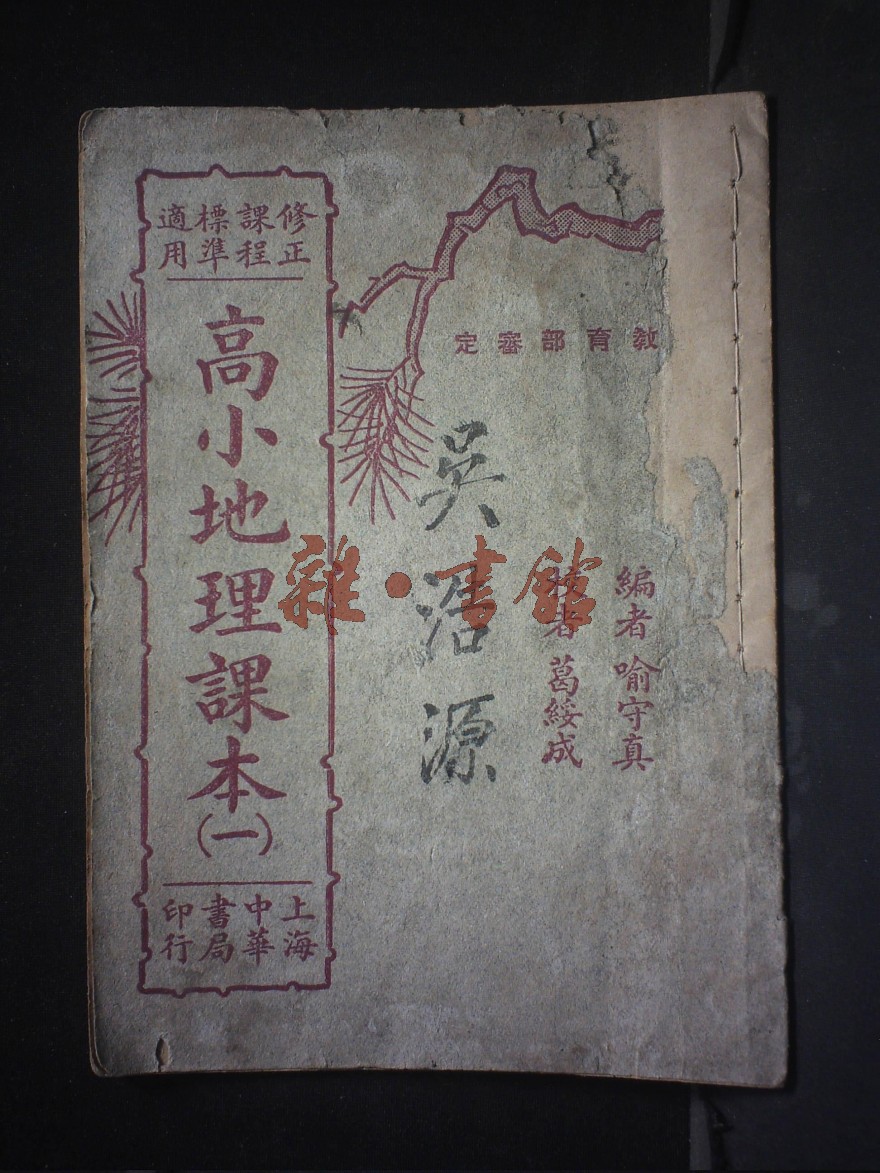 教育部審定
編者 喻守真
校者 葛綏成
吳浩源
修正課程標準適用
高小地理課本(一)
上海中華書局印行
雜·書館